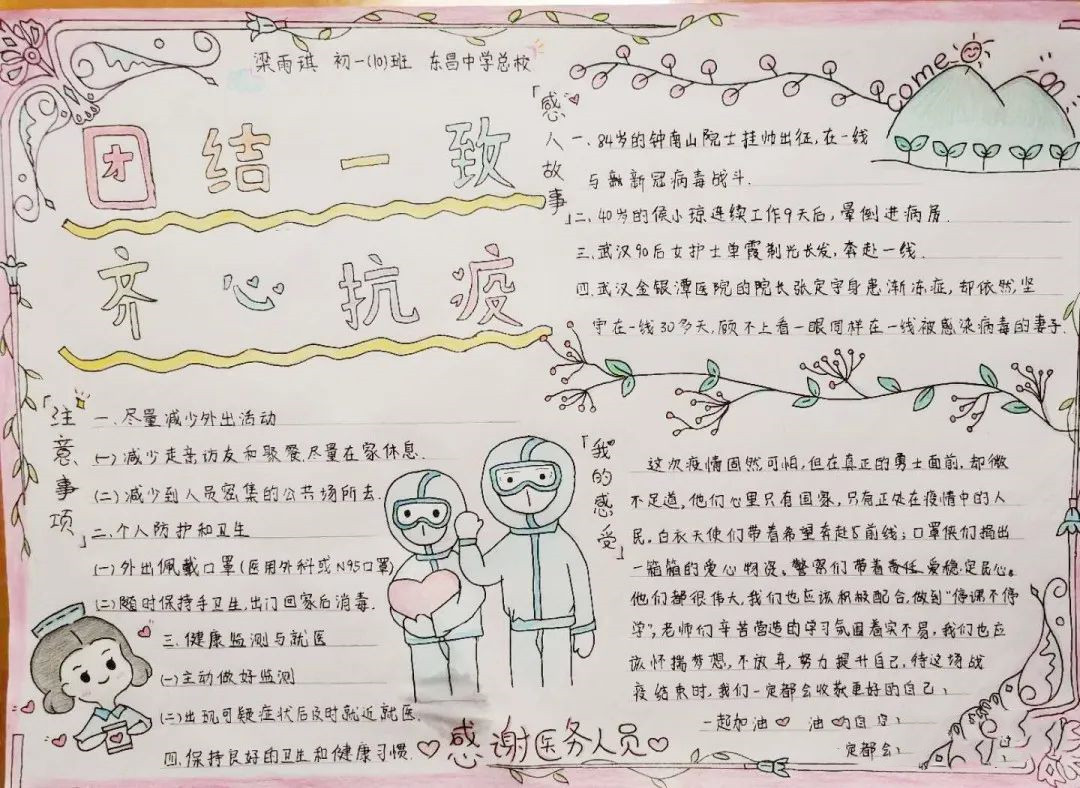 梁雨琪 初一(10)班 东昌中学总校
团结一致
齐心抗疫
come on
「感人故事」
一、84岁的钟南山院士挂帅出征,在一线
与新冠病毒战斗.
二、40岁的侯小琼连续工作9天后,晕倒进病房.
三、武汉90后女护士单霞剃光长发,奔赴一线.
四、武汉金银潭医院的院长张定宇身患渐冻症,却依然坚
守在一线30多天,顾不上看一眼同样在一线被感染病毒的妻子.
「注意事项」
一、尽量减少外出活动
(一)减少走亲访友和聚餐.尽量在家休息.
(二)减少到人员密集的公共场所去.
二、个人防护和卫生
(一)外出佩戴口罩(医用外科或N95口罩)
(二)随时保持手卫生,出门回家后消毒.
三、健康监测与就医
(一)主动做好监测
(二)出现可疑症状后及时就近就医.
四、保持良好的卫生和健康习惯.
感谢医务人员
「我的感受」
这次疫情固然可怕,但在真正的勇士面前,却微
不足道,他们心里只有国家,只有正处在疫情中的人
民,白衣天使们带着希望奔赴前线;口罩侠们捐出
一箱箱的爱心物资、警察们带着责任、爱稳定民心。
他们都很伟大,我们也应该积极配合,做到“停课不停
学”,老师们辛苦营造的学习氛围着实不易,我们也应
该怀揣梦想,不放弃,努力提升自己,待这场战
疫结束时,我们一定都会收获更好的自己;
一起加油
定都会